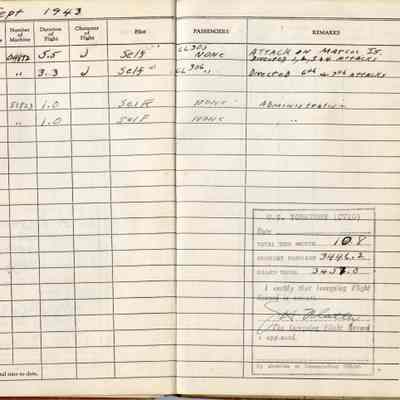 Sept 1943
Number of Machine Duration of Flight Character of Flight Pilot PASSENGERS REMARKS
5.5 J Self CL 303 NONE ATTACK ON MARCUS IS. DIRECTED 1, 2, 3 & 4 ATTACKS
" 3.3 J Self CL 306 " DIRECTED 6th & 7th ATTACKS
1.0 Self NONE ADMINISTRATIVE
" 1.0 SELF NONE "
U.S. YORKTOWN (CV10)
Date
TOTAL THIS MONTH 10.8
BROUGHT FORWARD 3446.2
GRAND TOTAL
I certify that foregoing Flight
Record is correct.
The foregoing Flight Record
is approved.
total time to date.